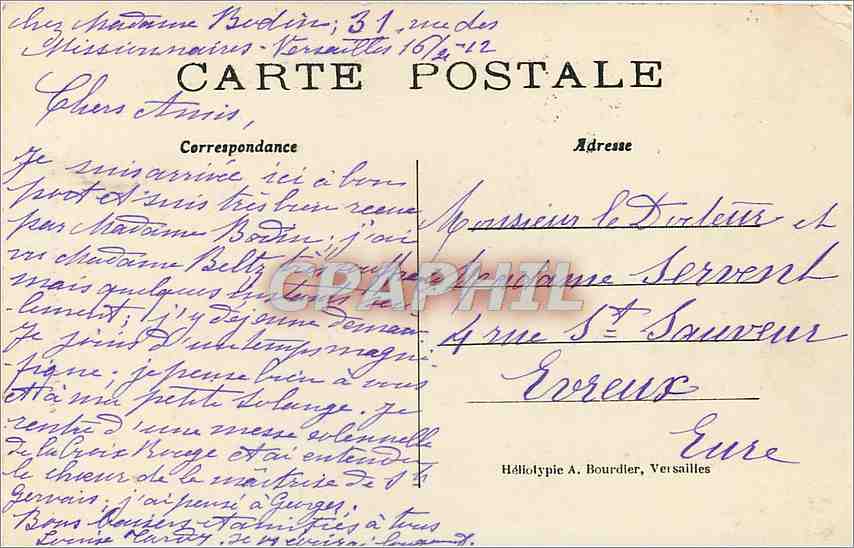 chez Madame Bodin, 31, rue des
Missionnaires - Versailles 16/21-12
CARTE POSTALE
Chers Amis,
Correspondance
Je suis arrivée ici à bon
port et suis très bien reçue
par Madame Bodin; j'ai
vu Madame Beltz
mais quelques instants seu
-lement; j'y déjeune demain
Je jouis d'un temps magni
-fique; je pense bien à vous
et à ma petite Solange. Je
rentre d'une messe solennelle
de la Croix Rouge et ai entendu
le choeur de la maîtrise de St
Gervais; j'ai pensé à Georges.
Bons baisers et amitiés à tous
Louise Je vs écrirai
Adresse
Monsieur le Docteur et
Madame Servent
4 rue St Sauveur
Evreux
Eure
Héliotypie A. Bourdier, Versailles
CPAPHIL